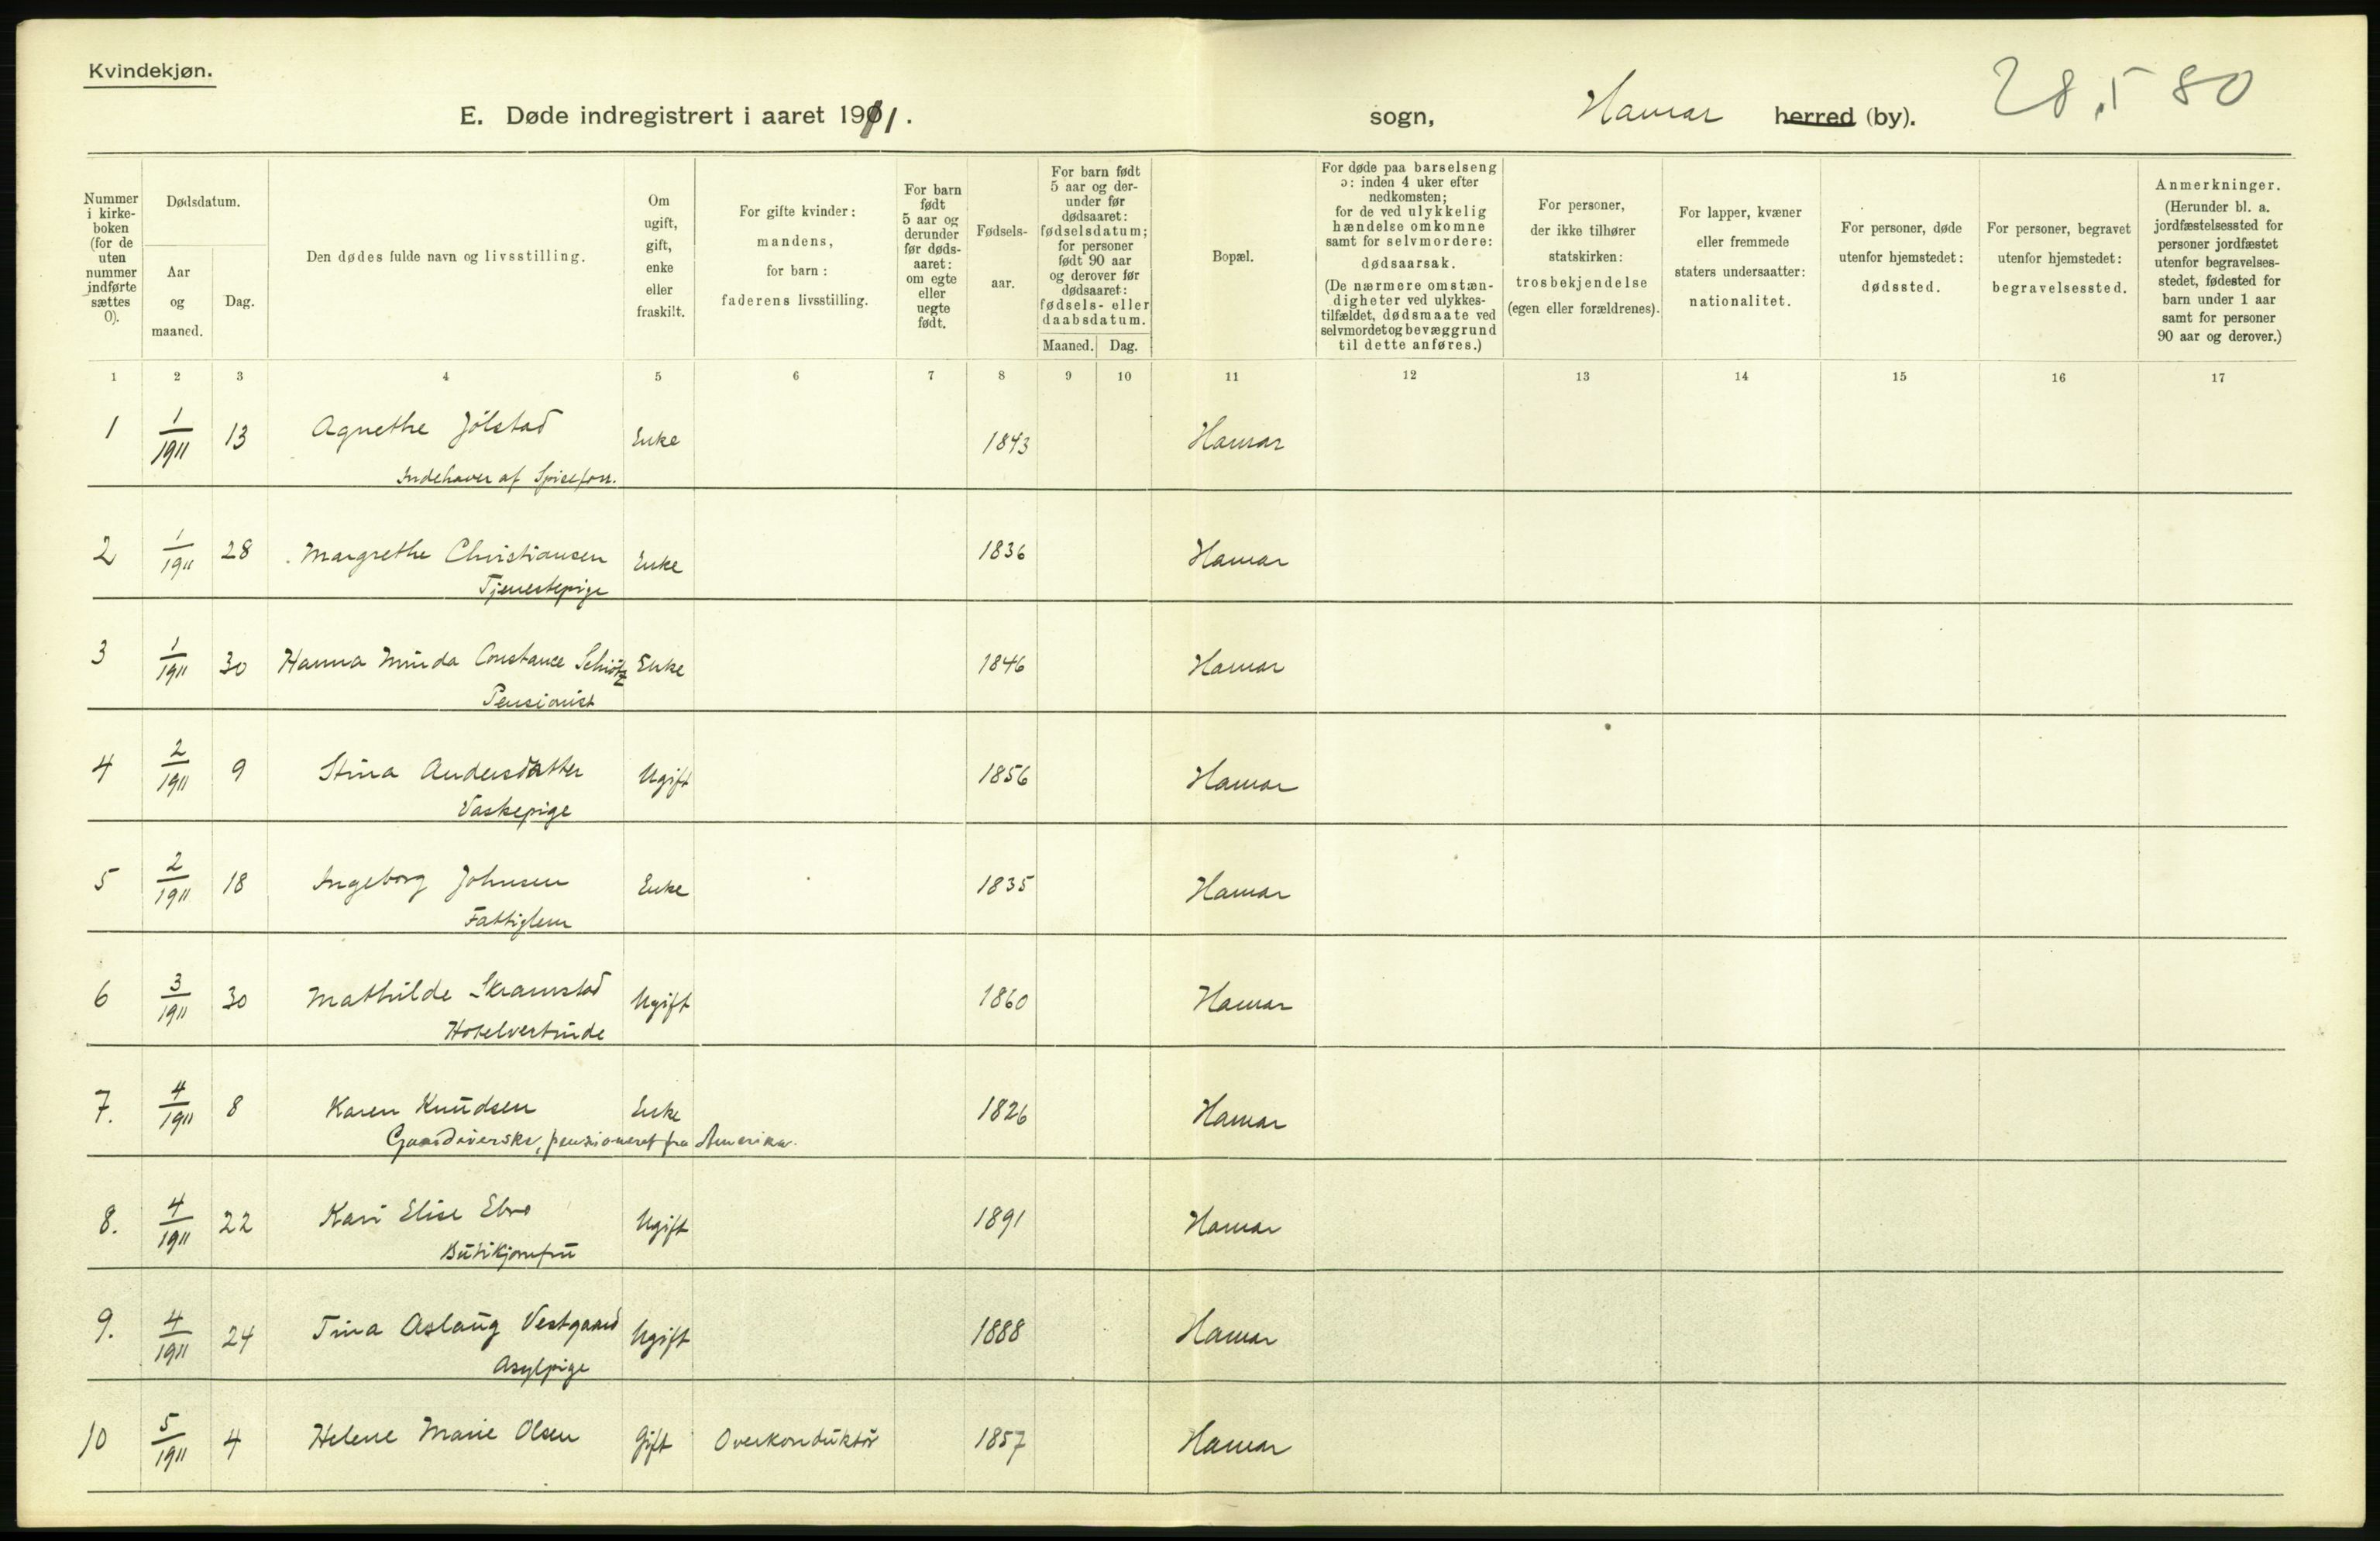 Kvindekjøn.
E. Døde indregistrert i aaret 1911.
sogn, Hamar herred (by). 28.5 80
Nummer i kirkeboken (for de uten nummer indførte sættes 0).
Dødsdatum.
Aar og maaned.
Dag.
Den dødes fulde navn og livsstilling.
Om ugift, gift, enke eller fraskilt.
For gifte kvinder: mandens, for barn: faderens livsstilling.
For barn født 5 aar og derunder før dødsaaret: om egte eller uegte født.
Fødselsaar.
For barn født 5 aar og derunder før dødsaaret: fødselsdatum; for personer født 90 aar og derover før dødsaaret: fødsels- eller daabsdatum.
Maaned. Dag.
Bopæl.
For døde paa barselseng ɔ: inden 4 uker efter nedkomsten; for de ved ulykkelig hændelse omkomne samt for selvmordere: dødsaarsak.
(De nærmere omstændigheter ved ulykkestilfældet, dødsmaate ved selvmordet og bevæggrund til dette anføres.)
For personer, der ikke tilhører statskirken: trosbekjendelse (egen eller forældrenes).
For lapper, kvæner eller fremmede staters undersaatter: nationalitet.
For personer, døde utenfor hjemstedet: dødssted.
For personer, begravet utenfor hjemstedet: begravelsessted.
Anmerkninger. (Herunder bl. a. jordfæstelsessted for personer jordfæstet utenfor begravelsesstedet, fødested for barn under 1 aar samt for personer 90 aar og derover.)
1 2 3 4 5 6 7 8 9 10 11 12 13 14 15 16 17
1 1/1911 13 Agnethe Jølstad Enke 1843 Hamar
Indehaver af Spiseforr.
2 1/1911 28 Margrethe Christiansen Enke 1836 Hamar
Tjenestepige
3 1/1911 30 Hanna Minda Constance Schiøtz Enke 1846 Hamar
Pensionist
4 2/1911 9 Stina Andersdatter Ugift 1856 Hamar
Vaskepige
5 2/1911 18 Ingeborg Johnsen Enke 1835 Hamar
Fattiglem
6 3/1911 30 Mathilde Skramstad Ugift 1860 Hamar
Hotelvertinde
7. 4/1911 8 Karen Knudsen Enke 1826 Hamar
Gaardeierske, pensioneret fra Amerika.
8. 4/1911 22 Kari Elise Ebro Ugift 1891 Hamar
Butikjomfru
9. 4/1911 24 Tina Aslaug Vestgaard Ugift 1888 Hamar
Asylpige
10 5/1911 4 Helene Marie Olsen Gift Overkonduktør 1857 Hamar